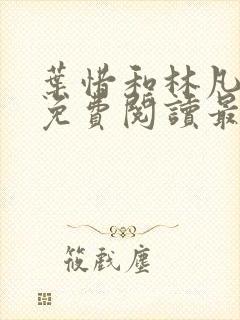 葉惜和林凡
免費閱讀最
筱戲塵